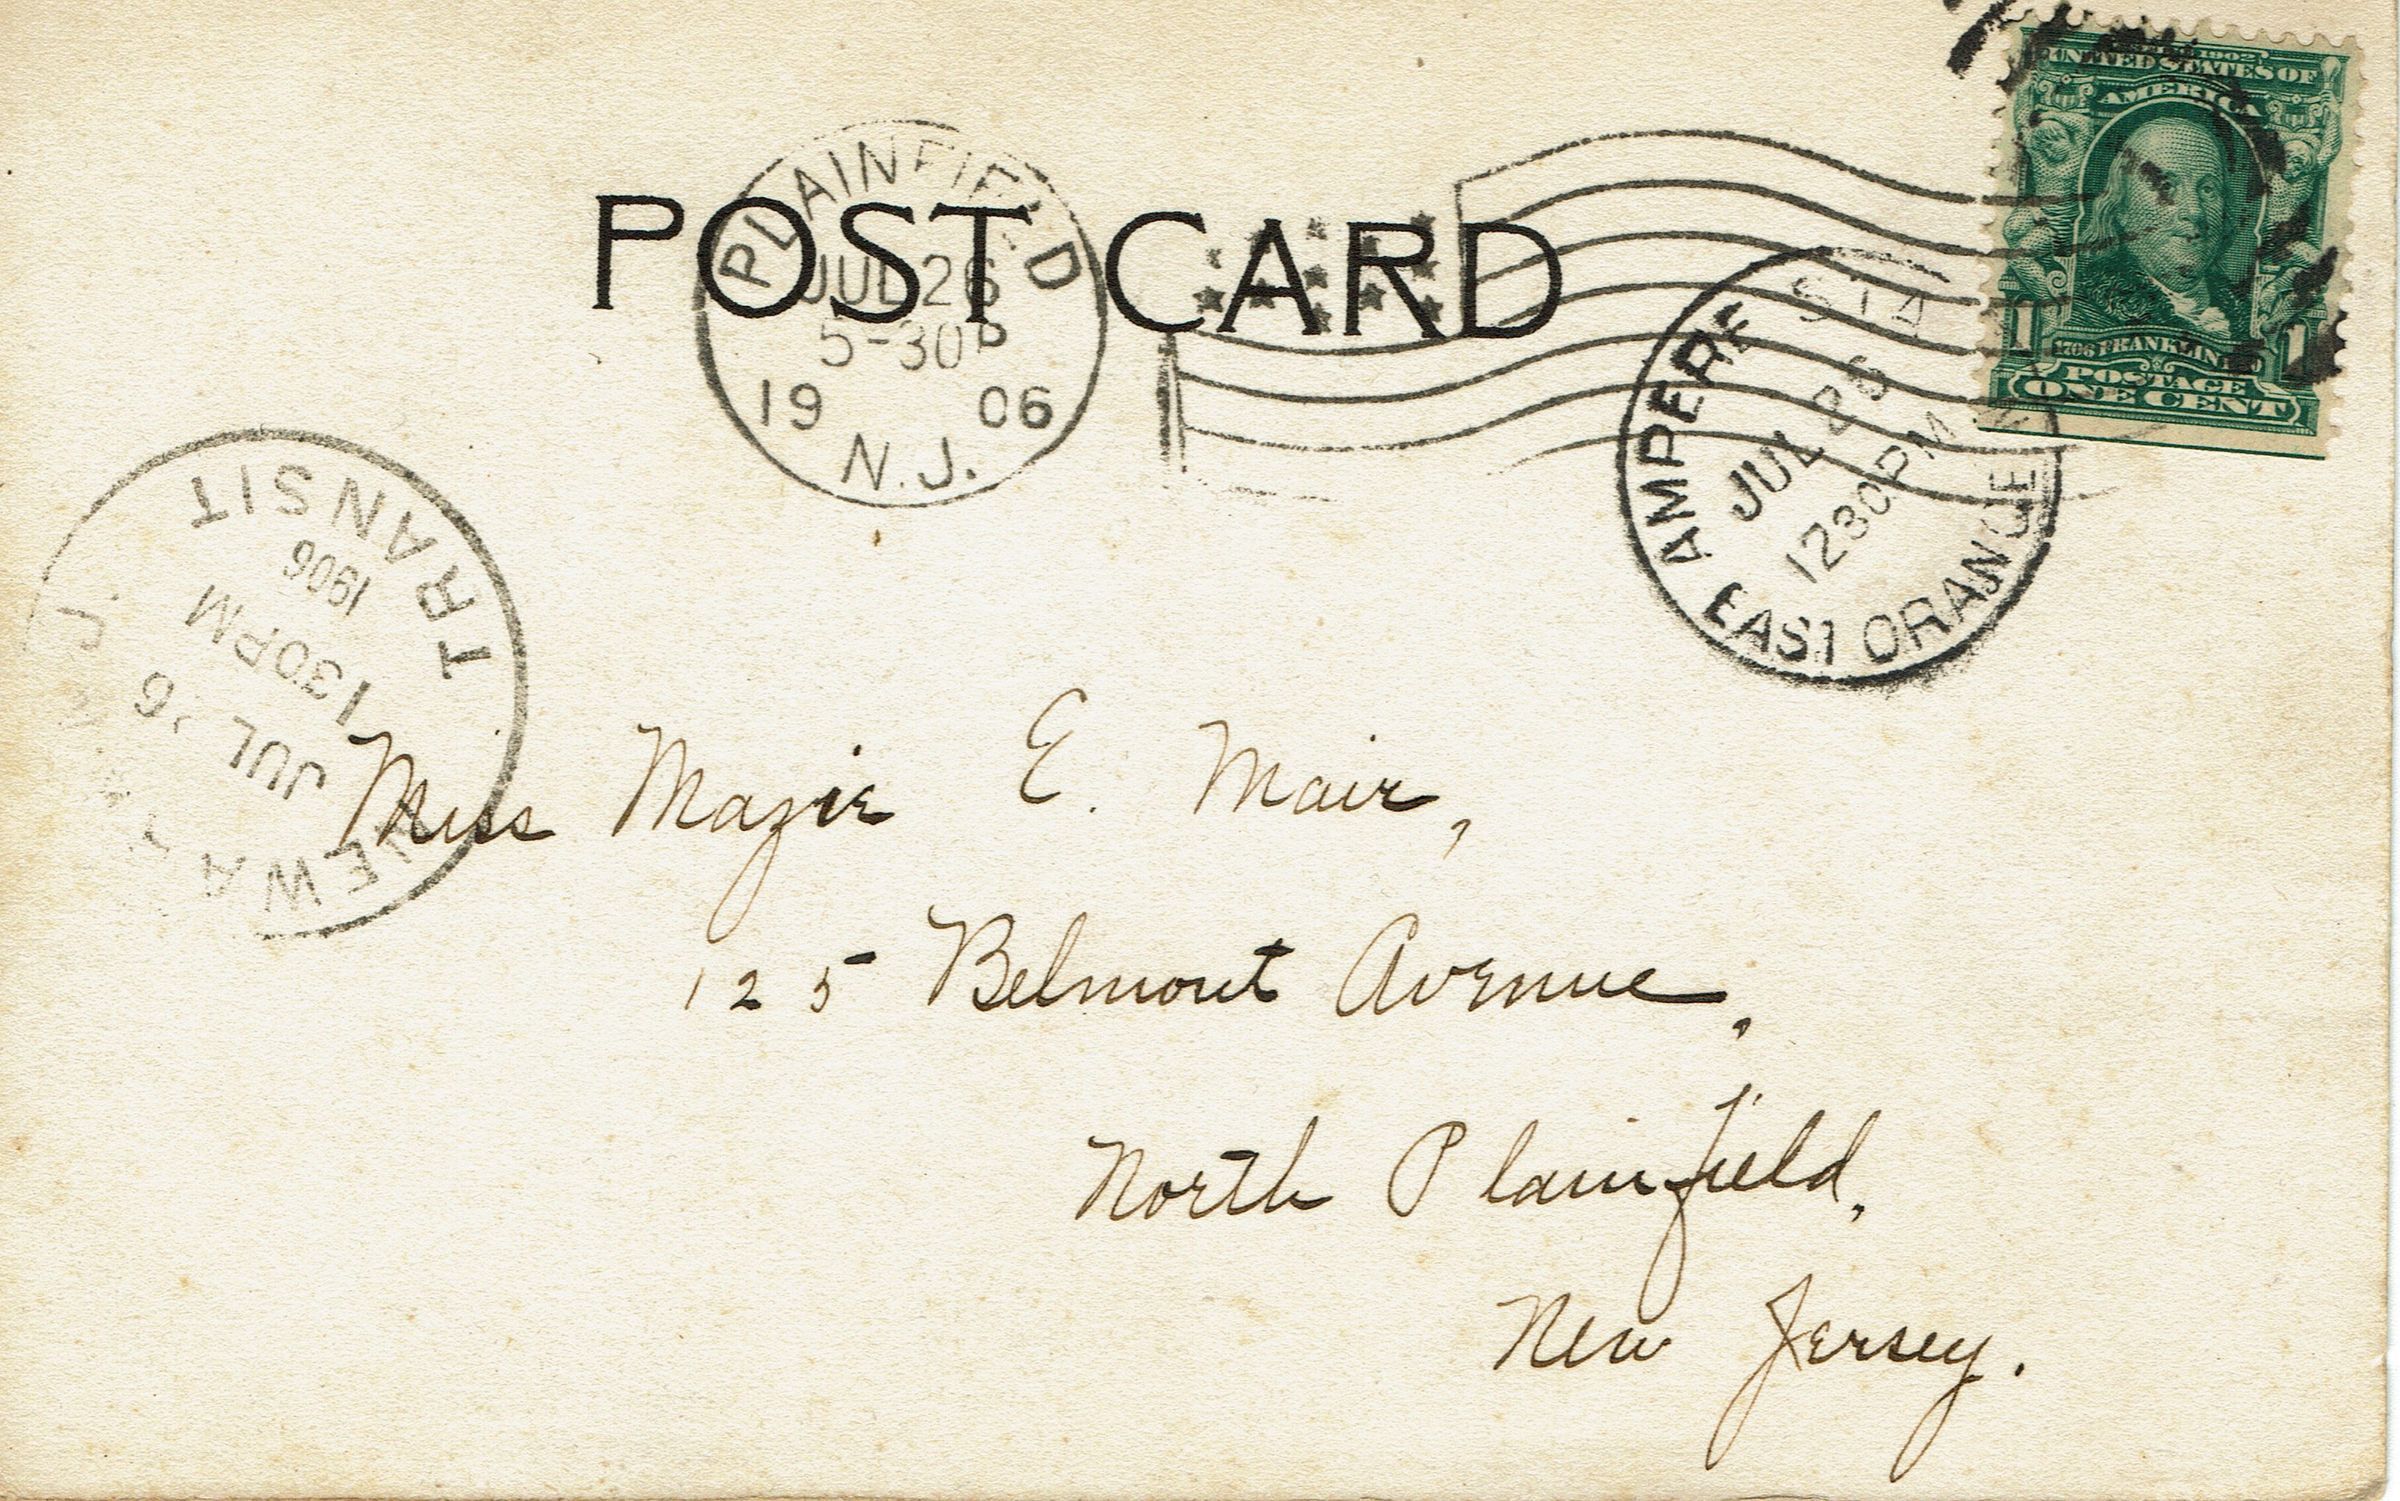 SERIES 1902
UNITED STATES OF
AMERICA
1 1
1706 FRANKLIN 1790
POSTAGE
ONE CENT
PLAINFIELD
JUL 26
5-30P
19 06
N.J.
POST CARD
AMPERE STA
JUL 26
1230PM
EAST ORANGE
TRANSIT
1906
130PM
JUL 26
J.
Miss Mazie E. Mair,
125 Belmont Avenue,
North Plainfield,
New Jersey.